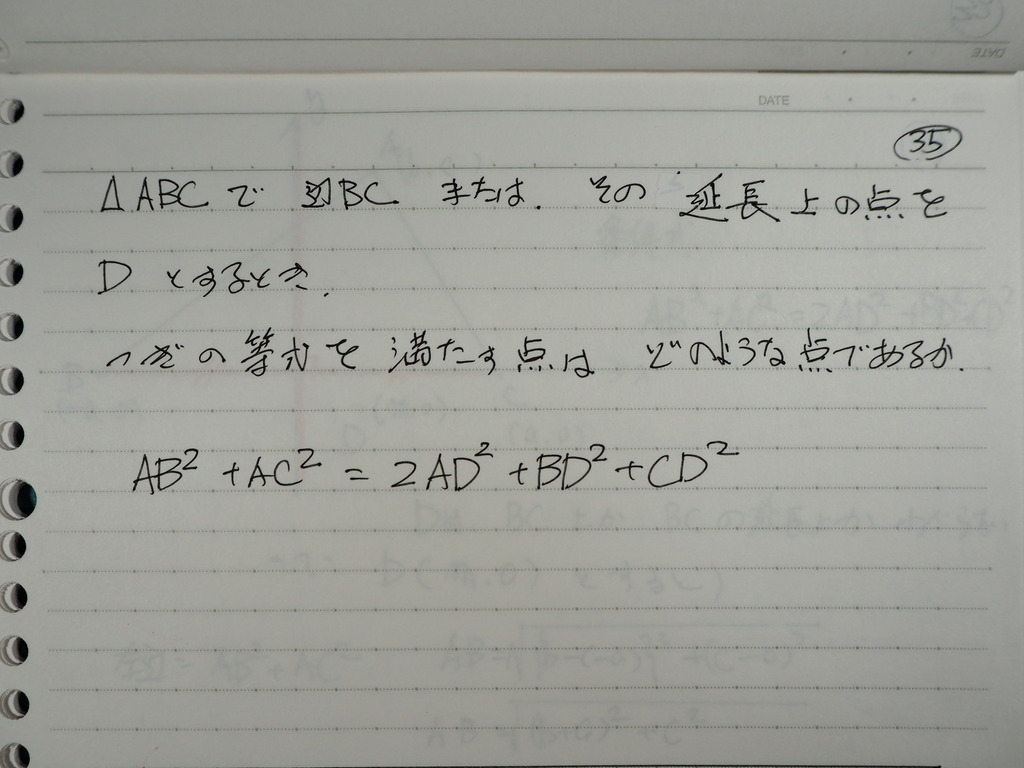 DATE
35
△ABCで 辺BC または. その 延長上の点を
D とするとき.
つぎの等式を満たす点は どのような点であるか.
AB² + AC² = 2AD² + BD² + CD²